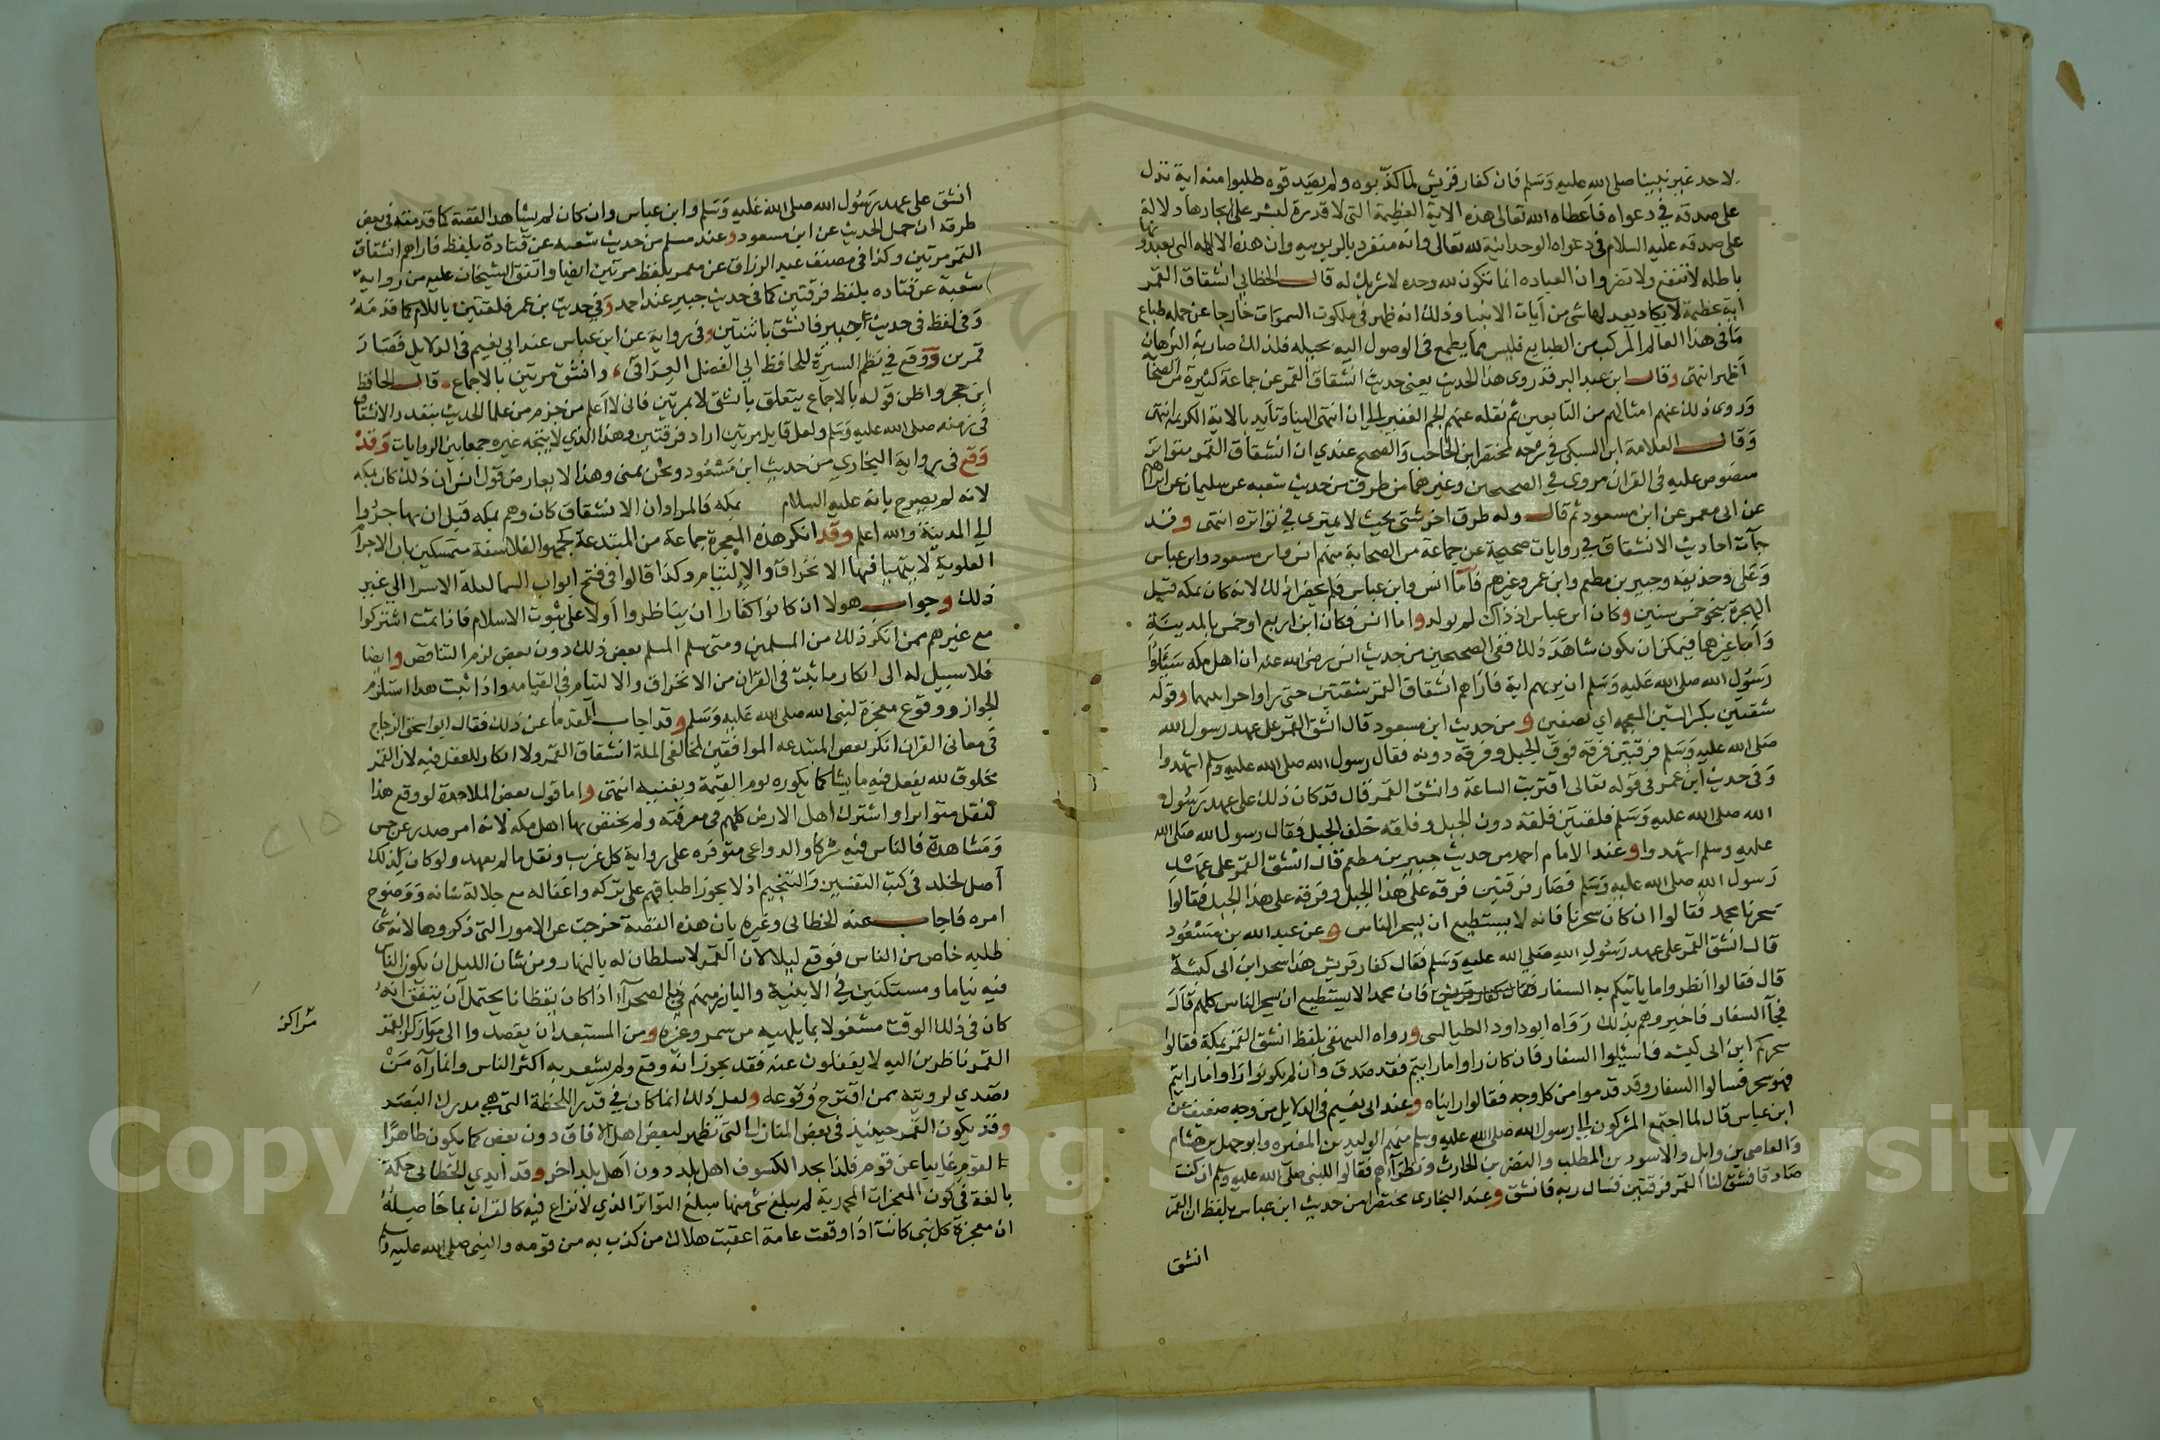 لاحد غير نبينا صلى الله عليه وسلم فان كفار قريش لما كذبوه ولم يصدقوه طلبوا منه اية تدل
على صدقه في دعواه فاعطاه الله تعالى هذه الاية العظيمة التي لا قدرة لبشر على ايجادها دلالة
على صدقه عليه السلام في دعواه الوحدانية لله تعالى وانه منفرد بالربوبيه وان هذه الالهه التي يعبدونها
باطله لا تنفع ولا تضر وان العباده انما تكون لله وحده لا شريك له قال الخطابي انشقاق القمر
اية عظيمة لا يكاد يعدلها شي من آيات الانبيا وذلك انه ظهر في ملكوت السموات خارجا عن جمله طباع
ما في هذا العالم المركب من الطبايع فليس مما يطمع في الوصول اليه بحيله فلذلك صار به البرهان
اظهر انتهى وقال ابن عبد البر قد روى هذا الحديث يعني حديث انشقاق القمر عن جماعة كثيرة من الصحابة
وروى ذلك عنهم امثالهم من التابعين ثم نقله عنهم الجم الغفير الى ان انتهى الينا وتأيد بالاية الكريمه انتهى
وقال العلامة ابن السبكي في شرحه لمختصر ابن الحاجب والصحيح عندي ان انشقاق القمر متواتر
منصوص عليه في القران مروى في الصحيحين وغيرهما من طرق من حديث شعبه عن سليمان عن ابراهيم
عن ابي معمر عن ابن مسعود ثم قال وله طرق اخر شتى بحيث لا يمترى في تواتره انتهى وقد
جآت احاديث الانشقاق في روايات صحيحة عن جماعة من الصحابة منهم انس وابن مسعود وابن عباس
وعلى وحذيفه وجبير بن مطعم وابن عمر وغيرهم فأما انس وابن عباس فلم يحضرا ذلك لانه كان بمكه قبل
الهجرة بنحو خمس سنين وكان ابن عباس اذ ذاك لم يولد واما انس فكان ابن اربع او خمس بالمدينة
وأما غيرهما فيمكن ان يكون شاهد ذلك ففي الصحيحين من حديث انس رضي الله عنه ان اهل مكه سألوا
رسول الله صلى الله عليه وسلم ان يريهم اية فاراهم انشقاق القمر شقتين حتى راوا حرا بينهما وقوله
شقتين بكسر الشين المعجمه اي نصفين و من حديث ابن مسعود قال انشق القمر على عهد رسول الله
صلى الله عليه وسلم فرقتين فرقه فوق الجبل وفرقه دونه فقال رسول الله صلى الله عليه وسلم اشهدوا
وفي حديث ابن عمر في قوله تعالى اقتربت الساعة وانشق القمر قال قد كان ذلك على عهد رسول
الله صلى الله عليه وسلم فلقتين فلقه دون الجبل وفلقه خلف الجبل فقال رسول الله صلى الله
عليه وسلم اشهدوا وعند الامام احمد من حديث جبير بن مطعم قال انشق القمر على عهد
رسول الله صلى الله عليه وسلم فصار فرقتين فرقه على هذا الجبل وفرقة على هذا الجبل فقالوا
سحرنا محمد فقالوا ان كان سحرنا فانه لا يستطيع ان يسحر الناس وعن عبد الله بن مسعود
قال انشق القمر على عهد رسول الله صلى الله عليه وسلم فقال كفار قريش هذا سحر ابن ابي كبشة
قال فقالوا انظروا ما ياتيكم به السفار فقال كفار قريش فان محمدا لا يستطيع ان يسحر الناس كلهم قال
فجآ السفار فاخبروهم بذلك رواه ابو داود الطيالسي ورواه البيهقي بلفظ انشق القمر بمكة فقالوا
سحركم ابن ابي كبشه فاسئلوا السفار فان كان راوا ما رايتم فقد صدق وان لم يكونوا راوا ما رايتم
فهو سحر فسالوا السفار وقد قدموا من كل وجه فقالوا رايناه وعند ابي نعيم في الدلايل من وجه ضعيف عن
ابن عباس قال لما اجتمع المشركون الى رسول الله صلى الله عليه وسلم منهم الوليد بن المغيره وابو جهل بن هشام
والعاص بن وايل والاسود بن المطلب والنضر بن الحارث ونظرآؤهم فقالوا للنبي صلى الله عليه وسلم ان كنت
صادقا فشق لنا القمر فرقتين فسال ربه فانشق وعند البخارى مختصرا من حديث ابن عباس بلفظ ان القمر
انشق
انشق على عهد رسول الله صلى الله عليه وسلم وابن عباس وان كان لم يشاهد القصة كما قدمته في بعض
طرقه انه حمل الحديث عن ابن مسعود وعند مسلم من حديث شعبه عن قتادة بلفظ فاراهم انشقاق
القمر مرتين وكذا في مصنف عبد الرزاق عن معمر بلفظ مرتين ايضا واتفق الشيخان عليه من رواية
شعبة عن قتاده بلفظ فرقتين كما في حديث جبير عند احمد وفي حديث بن عمر فلقتين باللام كما قدمته
وفي لفظ في حديث جبير فانشق باثنتين وفي رواية عن ابن عباس عند ابي نعيم في الدلايل فصار
قمرين ووقع في نظم السيرة للحافظ ابي الفضل العراقي وانشق مرتين بالاجماع قال الحافظ
ابن حجر واظن قوله بالاجماع يتعلق بانشق لا بمرتين فاني لا اعلم من جزم من علما الحديث بتعدد الانشقاق
في زمنه صلى الله عليه وسلم ولعل قايل مرتين اراد فرقتين وهذا الذي لا يتجه غيره جمعا بين الروايات وقد
وقع في رواية البخاري من حديث ابن مسعود ونحن بمنى وهذا لا يعارض قول انس ان ذلك كان بمكه
لانه لم يصرح بانه عليه السلام بمكه فالمراد ان الانشقاق كان وهم بمكه قبل ان يهاجروا
الى المدينة والله اعلم وقد انكر هذه المعجزة جماعة من المبتدعة كجمهور الفلاسفة متمسكين بان الاجرام
العلوية لا يتهيا فيها الانخراق والالتيام وكذا قالوا في فتح ابواب السما ليلة الاسرا الى غير
ذلك وجواب هولا ان كانوا كفارا ان يناظروا اولا على ثبوت الاسلام فاذا تمت اشتركوا
مع غيرهم ممن انكر ذلك من المسلمين ومتى سلم المسلم بعض ذلك دون بعض لزم التناقض وايضا
فلا سبيل له الى انكار ما ثبت في القران من الانخراق والالتيام في القيامه واذا ثبت هذا استلزم
الجواز ووقوع معجزة لنبي الله صلى الله عليه وسلم وقد اجاب القدما عن ذلك فقال ابو اسحق الزجاج
في معاني القران انكر بعض المبتدعه الموافقين لمخالفي الملة انشقاق القمر ولا انكار للعقل فيه لان القمر
مخلوق لله يفعل فيه ما يشا كما يكوره يوم القيمة ويفنيه انتهى واما قول بعض الملاحدة لو وقع هذا
لنقل متواترا واشترك اهل الارض كلهم في معرفته ولم يختص بها اهل مكه لانه امر صدر عن حس
ومشاهدة فالناس فيه شركا والدواعي متوفره على رواية كل غريب ونقل ما لم يعهد ولو كان لذلك
اصل لخلد في كتب التفسير والتنجيم اذ لا يجوز اطباقهم على تركه واغفاله مع جلالة شانه ووضوح
امره فاجاب عنه الخطابي وغيره بان هذه القصة خرجت عن الامور التي ذكروها لانه شي
طلبه خاص من الناس فوقع ليلا لان القمر لا سلطان له بالنهار ومن شان الليل ان يكون الناس
فيه نياما ومستكنين في الابنية والبارز منهم في الصحرآء اذا كان يقظانا يحتمل أن يتفق انه
كان في ذلك الوقت مشغولا بما يلهيه من سمر وغيره ومن المستبعد ان يقصدوا الى مراكز القمر
القمر ناظرين اليه لا يغفلون عنه فقد يجوز انه وقع ولم يشعر به اكثر الناس وانما رآه من
تصدى لرويته ممن اقترح وقوعه ولعل ذلك انما كان في قدر اللحظة التي هي مدرك البصر
وقد يكون القمر حينيذ في بعض المنازل التي تظهر لبعض اهل الافاق دون بعض كما يكون ظاهرا
لقوم غايبا عن قوم فلذا يجد الكسوف اهل بلد دون اهل بلد اخر وقد ابدى الخطابي حكمة
بالغة في كون المعجزات المحمدية لم يبلغ شي منها مبلغ التواتر الذي لا نزاع فيه كالقران بما حاصله
ان معجزة كل نبي كانت اذا وقعت عامة اعقبت هلاك من كذب به من قومه والنبي صلى الله عليه وسلم
مراكز
٢١٥
Copy
King S
ersity